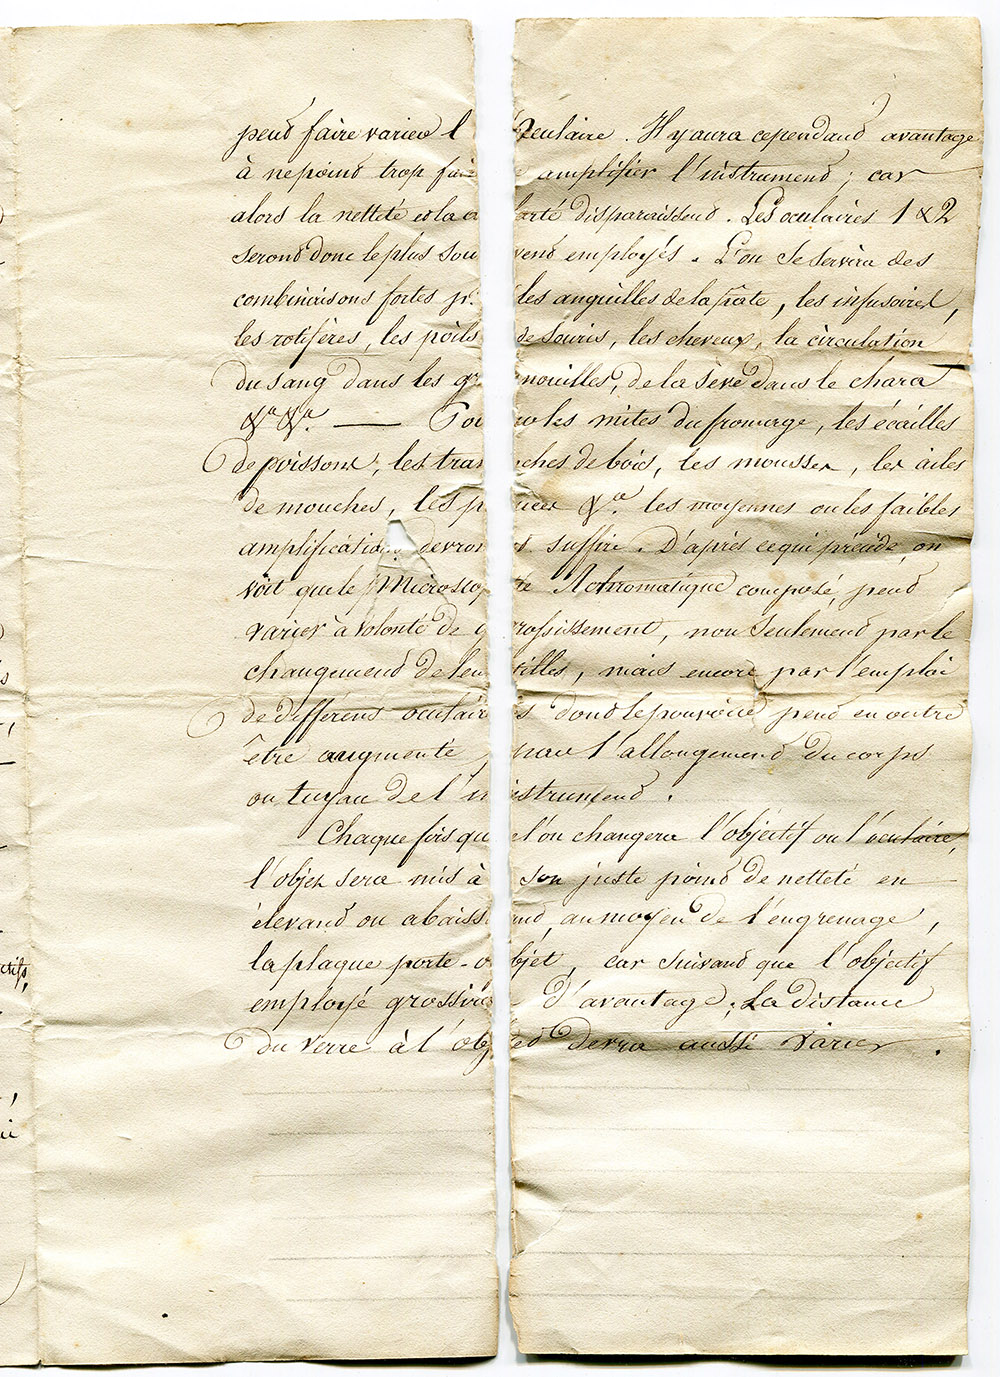 peut faire varier l'oculaire. Il y aura cependant avantage
à ne point trop faire amplifier l'instrument; car
alors la netteté et la clarté disparaissent. Les oculaires 1 & 2
seront donc le plus souvent employés. L'on se servira des
combinaisons fortes pr. les anguilles de la pâte, les infusoires,
les rotifères, les poils de souris, les cheveux, la circulation
du sang dans les grenouilles, de la sève dans le chara
&a &a. — Pour les mites du fromage, les écailles
de poissons, les tranches de bois, les mousses, les ailes
de mouches, les puces &a. les moyennes ou les faibles
amplifications devront suffire. D'après ce qui précède, on
voit que le Microscope Achromatique composé, peut
varier à volonté de grossissement, non seulement par le
changement de lentilles, mais encore par l'emploi
de différens oculaires dont le pouvoir peut en outre
être augmenté, par l'allongement du corps
ou tuyau de l'instrument.
Chaque fois que l'on changera l'objectif ou l'oculaire,
l'objet sera mis à son juste point de netteté en
élevant ou abaissant, au moyen de l'engrenage,
la plaque porte-objet, car suivant que l'objectif
employé grossira d'avantage; La distance
du verre à l'objet devra aussi varier.